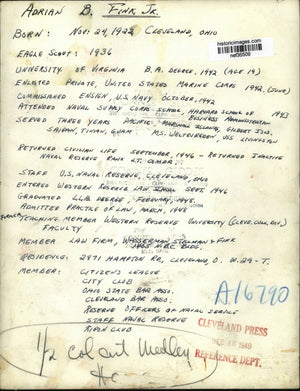 ADRIAN B. FINK, JR.
historicimages.com
net36509
BORN: NOV. 24, 1922 CLEVELAND, OHIO
EAGLE SCOUT: 1936
UNIVERSITY OF VIRGINIA B.A. DEGREE, 1942 (AGE 19)
ENLISTED PRIVATE, UNITED STATES MARINE CORPS 1942, (JUNE)
COMMISSIONED ENSIGN, U.S. NAVY OCTOBER, 1942
ATTENDED NAVAL SUPPLY CORPS SCHOOL, HARVARD SCHOOL OF BUSINESS ADMINISTRATION 1943
SERVED THREE YEARS PACIFIC - MARSHALL ISLANDS, GILBERT ISDS.
SAIPAN, TINIAN, GUAM. MS. WELTEVREDEN, USS LIVINGSTON
RETURNED CIVILIAN LIFE SEPTEMBER, 1946 - RETURNED INACTIVE
NAVAL RESERVE RANK LT. COMDR.
STAFF U.S. NAVAL RESERVE, CLEVELAND, OHIO
ENTERED WESTERN RESERVE LAW SCHOOL SEPT. 1946
GRADUATED LLB DEGREE, FEBRUARY, 1948.
ADMITTED PRACTICE OF LAW, MARCH, 1948
TEACHING MEMBER WESTERN RESERVE UNIVERSITY (CLEVE. COLL. DIV.)
FACULTY
MEMBER LAW FIRM, WASSERMAN, STILLMAN & FINK
BLDG.
RESIDENCE: 2971 HAMPTON RD, CLEVELAND, O.
MEMBER: CITIZEN'S LEAGUE
CITY CLUB
OHIO STATE BAR ASSO.
CLEVELAND BAR ASSO.
RESERVE OFFICERS OF NAVAL SERVICE
STAFF NAVAL RESERVE
CLUB
A16790
CLEVELAND PRESS
1949
REFERENCE DEPT.
1/2 col cut Medley